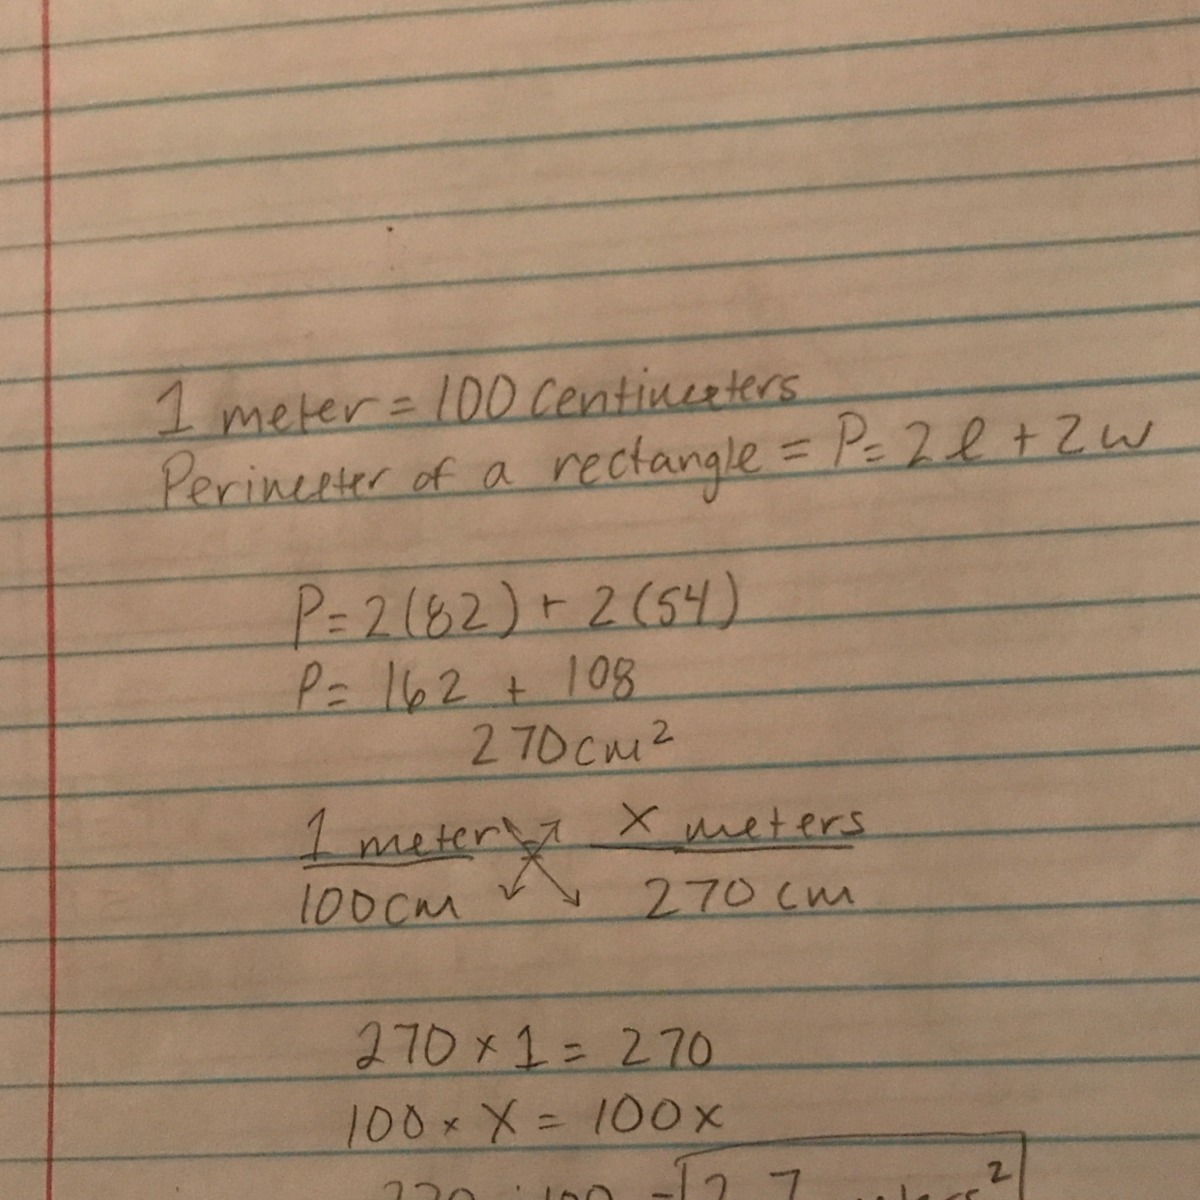 1 meter = 100 Centimeters
Perimeter of a rectangle = P= 2l + 2w
P= 2(82) + 2(54)
P= 162 + 108
270cm²
1 meter x meters
100cm 270 cm
270 x 1 = 270
100 x X = 100x
270 100 = 2.7 meters²